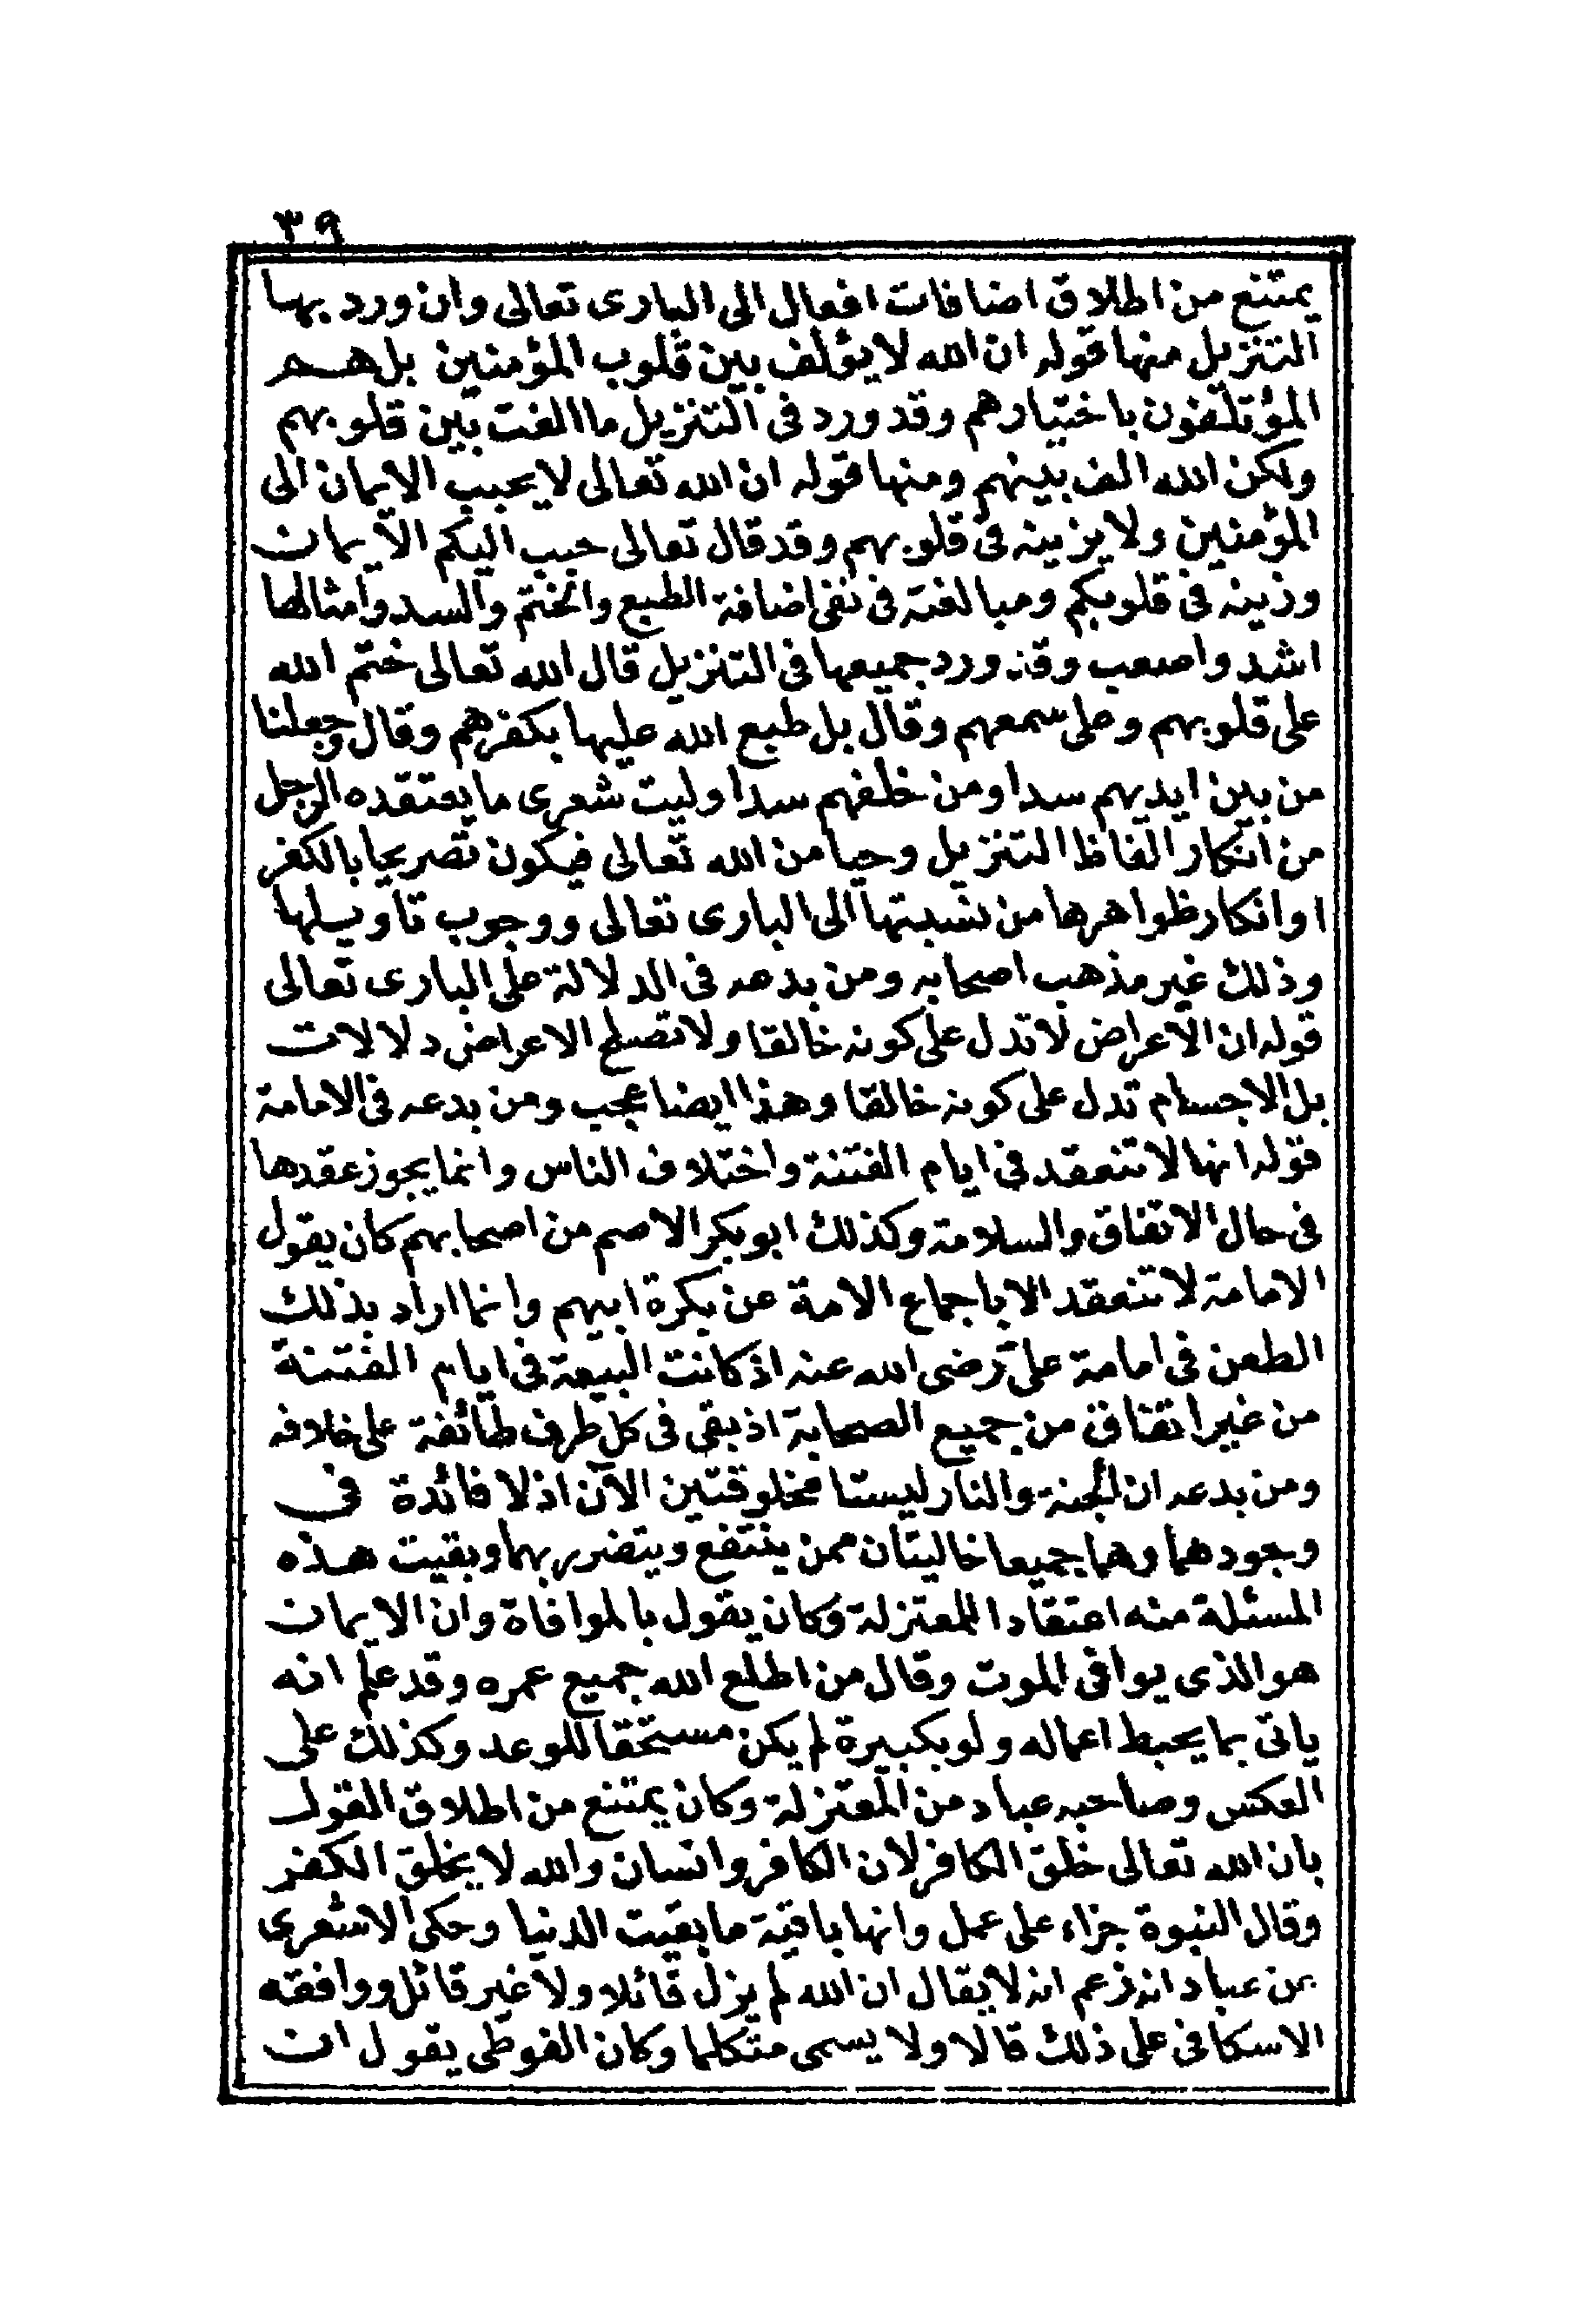 ٣٩
يمتنع من اطلاق اضافات افعال الى البارى تعالى وان ورد بها
التنزيل منها قوله ان الله لا يؤلف بين قلوب المؤمنين بل هم
المؤتلفون باختيارهم وقد ورد فى التنزيل ما الفت بين قلوبهم
ولكن الله الف بينهم ومنها قوله ان الله تعالى لا يحبب الايمان الى
المؤمنين ولا يزينه فى قلوبهم وقد قال تعالى حبب اليكم الايمان
وزينه فى قلوبكم ومبالغته فى نفى اضافة الطبع والختم والسد وامثالها
اشد واصعب وقد ورد جميعها فى التنزيل قال الله تعالى ختم الله
على قلوبهم وعلى سمعهم وقال بل طبع الله عليها بكفرهم وقال وجعلنا
من بين ايديهم سدا ومن خلفهم سدا وليت شعرى ما يعتقده الرجل
من انكار الفاظ التنزيل وحيا من الله تعالى فيكون تصريحا بالكفر
او انكار ظواهرها من نسبتها الى البارى تعالى ووجوب تاويلها
وذلك غير مذهب اصحابه ومن بدعه فى الدلالة على البارى تعالى
قوله ان الاعراض لا تدل على كونه خالقا ولا تصلح الاعراض دلالات
بل الاجسام تدل على كونه خالقا وهذا ايضا عجب ومن بدعه فى الامامة
قوله انها لا تنعقد فى ايام الفتنة واختلاف الناس وانما يجوز عقدها
فى حال الاتفاق والسلامة وكذلك ابو بكر الاصم من اصحابهم كان يقول
الامامة لا تنعقد الا باجماع الامة عن بكرة ابيهم وانما اراد بذلك
الطعن فى امامة على رضى الله عنه اذ كانت البيعة فى ايام الفتنة
من غير اتفاق من جميع الصحابة اذ بقى فى كل طرف طائفة على خلافه
ومن بدعه ان الجنة والنار ليستا مخلوقتين الآن اذ لا فائدة فى
وجودهما وهما جميعا خاليتان ممن ينتفع ويتضرر بهما وبقيت هذه
المسئلة منه اعتقادا للمعتزلة وكان يقول بالموافاة وان الايمان
هو الذى يوافى الموت وقال من اطلع الله جميع عمره وقد علم انه
ياتى بما يحبط اعماله ولو بكبيرة لم يكن مستحقا للوعد وكذلك على
العكس وصاحبه عباد من المعتزلة وكان يمتنع من اطلاق القول
بان الله تعالى خلق الكافر لان الكافر وانسان والله لا يخلق الكفر
وقال النبوة جزاء على عمل وانها باقية ما بقيت الدنيا وحكى الاشعرى
عن عباد انه زعم انه لا يقال ان الله لم يزل قائلا ولا غير قائل ووافقه
الاسكافى على ذلك قالا ولا يسمى متكلما وكان الفوطى يقول ان